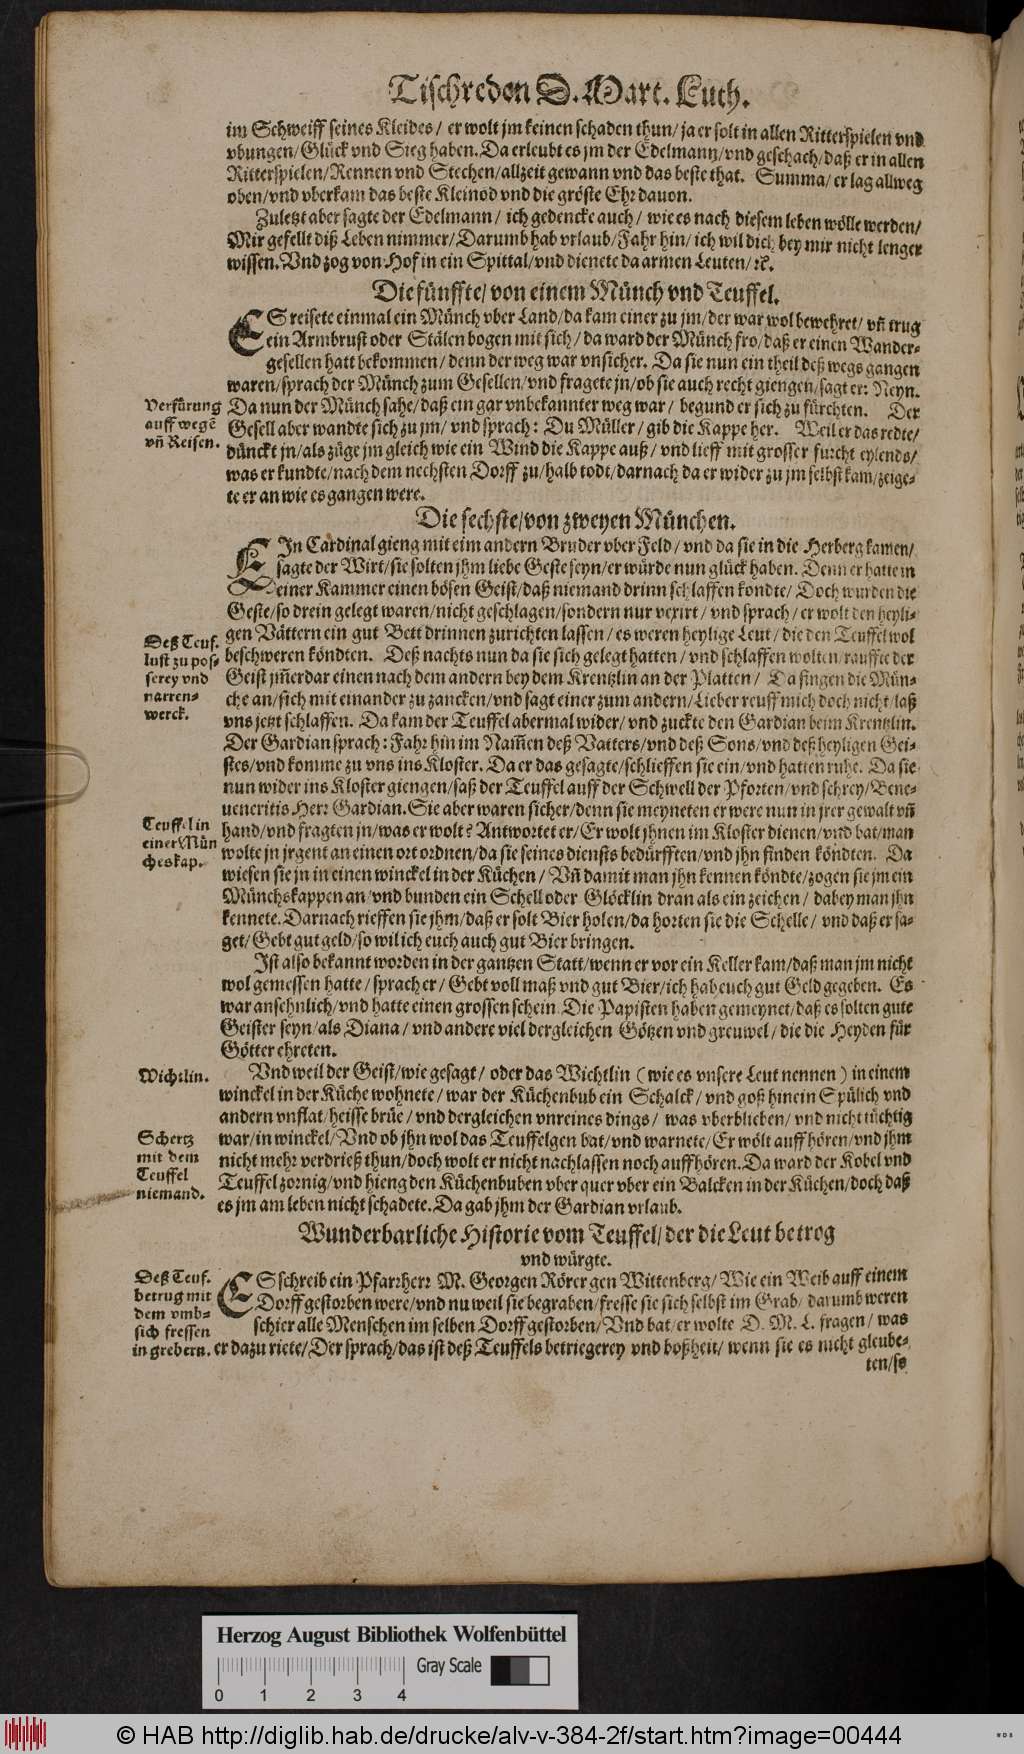 Tischreden D. Mart. Luth.
im Schweiff seines Kleides / er wolt jm keinen schaden thun / ja er solt in allen Ritterspielen vnd
vbungen / Glück vnd Sieg haben. Da erleubt es jm der Edelmann / vnd geschach / daß er in allen
Ritterspielen / Rennen vnd Stechen / allzeit gewann vnd das beste that. Summa / er lag allweg
oben / vnd vberkam das beste Kleinod vnd die gröste Ehr dauon.
Zuletzt aber sagte der Edelmann / ich gedencke auch / wie es nach diesem leben wölle werden /
Mir gefellt diß Leben nimmer / Darumb hab vrlaub / Fahr hin / ich wil dich bey mir nicht lenger
wissen. Vnd zog von Hof in ein Spittal / vnd dienete da armen Leuten / ꝛc.
Die fünffte / von einem Münch vnd Teuffel.
ES reisete einmal ein Münch vber Land / da kam einer zu jm / der war wol bewehret / vñ trug
ein Armbrust oder Stälen bogen mit sich / da ward der Münch fro / daß er einen Wander-
gesellen hatt bekommen / denn der weg war vnsicher. Da sie nun ein theil deß wegs gangen
waren / sprach der Münch zum Gesellen / vnd fragete jn / ob sie auch recht giengen / sagt er: Neyn.
Verfürung
auff wegē
vñ Reisen.
Da nun der Münch sahe / daß ein gar vnbekannter weg war / begund er sich zu fürchten. Der
Gesell aber wandte sich zu jm / vnd sprach: Du Müller / gib die Kappe her. Weil er das redte /
dünckt jn / als züge jm gleich wie ein Wind die Kappe auß / vnd lieff mit grosser furcht eylends /
was er kundte / nach dem nechsten Dorff zu / halb todt / darnach da er wider zu jm selbst kam / zeige-
te er an wie es gangen were.
Die sechste / von zweyen München.
EIn Cardinal gieng mit eim andern Bruder vber Feld / vnd da sie in die Herberg kamen /
sagte der Wirt / sie solten jhm liebe Geste seyn / er würde nun glück haben. Denn er hatte in
einer Kammer einen bösen Geist / daß niemand drinn schlaffen kondte / Doch wurden die
Geste / so drein gelegt waren / nicht geschlagen / sondern nur vexirt / vnd sprach / er wolt den heyli-
gen Vättern ein gut Bett drinnen zurichten lassen / es weren heylige Leut / die den Teuffel wol
beschweren köndten. Deß nachts nun da sie sich gelegt hatten / vnd schlaffen wolten / rauffte der
Geist jm̃erdar einen nach dem andern bey dem Krentzlin an der Platten / Da fingen die Mün-
che an / sich mit einander zu zancken / vnd sagt einer zum andern / Lieber reuff mich doch nicht / laß
vns jetzt schlaffen. Da kam der Teuffel abermal wider / vnd zuckte den Gardian beim Krentzlin.
Deß Teuf.
lust zu pos-
serey vnd
narren-
werck.
Der Gardian sprach: Fahr hin im Nam̃en deß Vatters / vnd deß Sons / vnd deß heyligen Gei-
stes / vnd komme zu vns ins Kloster. Da er das gesagte / schlieffen sie ein / vnd hatten ruhe. Da sie
nun wider ins Kloster giengen / saß der Teuffel auff der Schwell der Pforten / vnd schrey / Bene-
ueneritis Herr Gardian. Sie aber waren sicher / denn sie meyneten er were nun in jrer gewalt vñ
hand / vnd fragten jn / was er wolt? Antwortet er / Er wolt jhnen im Kloster dienen / vnd bat / man
wolte jn jrgent an einen ort ordnen / da sie seines diensts bedürfften / vnd jhn finden köndten. Da
wiesen sie jn in einen winckel in der Küchen / Vñ damit man jhn kennen köndte / zogen sie jm ein
Teuffel in
einer Mün
ches kap.
Münchskappen an / vnd bunden ein Schell oder Glöcklin dran als ein zeichen / dabey man jhn
kennete. Darnach rieffen sie jhm / daß er solt Bier holen / da horten sie die Schelle / vnd daß er sa-
get / Gebt gut geld / so wil ich euch auch gut Bier bringen.
Ist also bekannt worden in der gantzen Statt / wenn er vor ein Keller kam / daß man jm nicht
wol gemessen hatte / sprach er / Gebt voll maß vnd gut Bier / ich hab euch gut Geld gegeben. Es
war ansehnlich / vnd hatte einen grossen schein. Die Papisten haben gemeynet / daß es solten gute
Geister seyn / als Diana / vnd andere viel dergleichen Götzen vnd greuwel / die die Heyden für
Götter ehreten.
Wichtlin.
Vnd weil der Geist / wie gesagt / oder das Wichtlin (wie es vnsere Leut nennen) in einem
winckel in der Küche wohnete / war der Küchenbub ein Schalck / vnd goß hinein Spülich vnd
andern vnflat / heisse brüe / vnd dergleichen vnreines dings / was vberblieben / vnd nicht tüchtig
war / in winckel / Vnd ob jhn wol das Teuffelgen bat / vnd warnete / Er wölt auff hören / vnd jhm
nicht mehr verdrieß thun / doch wolt er nicht nachlassen noch auffhören. Da ward der Kobel vnd
Teuffel zornig / vnd hieng den Küchenbuben vber quer vber ein Balcken in der Küchen / doch daß
es jm am leben nicht schadete. Da gab jhm der Gardian vrlaub.
Schertz
mit dem
Teuffel
niemand.
Wunderbarliche Historie vom Teuffel / der die Leut betrog
vnd würgte.
ES schreib ein Pfarrherr M. Georgen Rörer gen Wittenberg / Wie ein Weib auff einem
Dorff gestorben were / vnd nu weil sie begraben / fresse sie sich selbst im Grab / darumb weren
schier alle Menschen im selben Dorff gestorben / Vnd bat / er wolte D. M. L. fragen / was
er dazu riete / Der sprach / das ist deß Teuffels betriegerey vnd boßheit / wenn sie es nicht gleube-
ten / so
Deß Teuf.
betrug mit
dem vmb-
sich fressen
in grebern.
Herzog August Bibliothek Wolfenbüttel
0 1 2 3 4
Gray Scale
© HAB http://diglib.hab.de/drucke/alv-v-384-2f/start.htm?image=00444